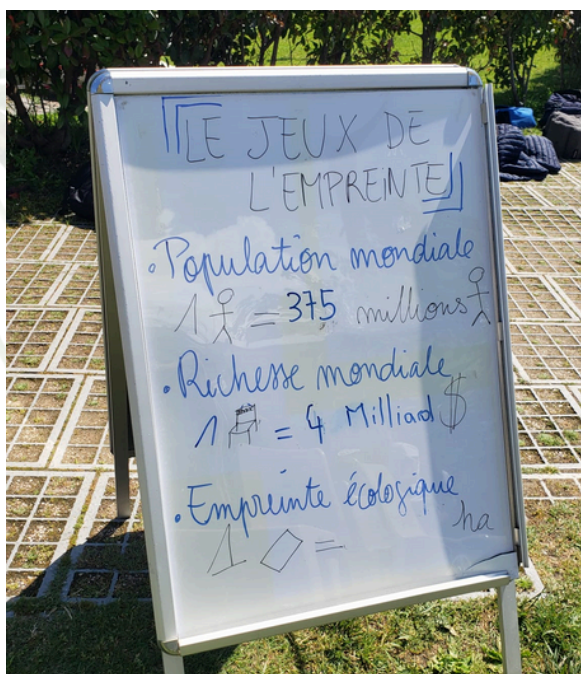 LE JEUX DE
L'EMPREINTE
• Population mondiale
1 = 375 millions
• Richesse mondiale
1 = 4 Milliard $
• Empreinte écologique
1 = ha